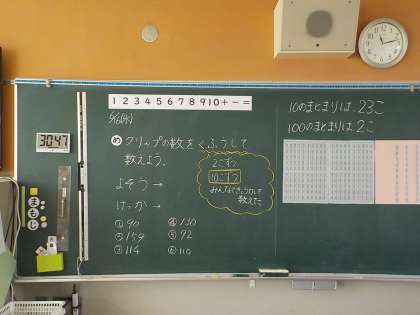 1 2 3 4 5 6 7 8 9 10 + - =
30:47
5/6(水)
め クリップの数をくふうして
数えよう。
よそう →
けっか →
① 90
② 159
③ 114
④ 130
⑤ 92
⑥ 110
2こずつ
10こずつ
みんなできょうりょくして
数えた
10のまとまりは、23こ
100のまとまりは 2こ
まもじ